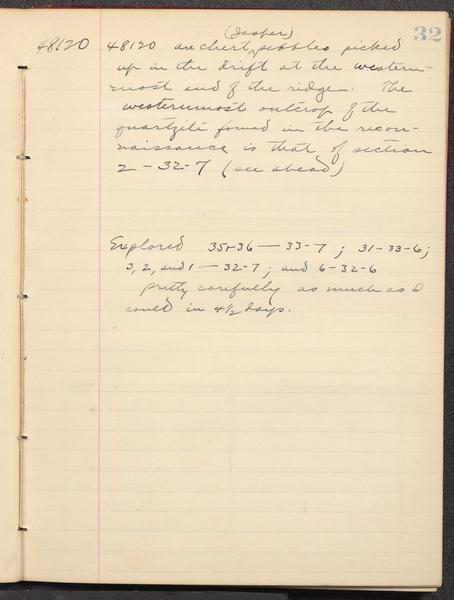 32
(Jasper)
48120 48120 are chert, pebbles picked
up in the drift at the western-
most end of the ridge. The
westernmost outcrop of the
quartzite found in the recon-
naissance is that of section
2-32-7 (see ahead)
Explored 35+36—33-7; 31-33-6;
3, 2, and 1—32-7; and 6-32-6
pretty carefully as much as I
could in 4½ days.